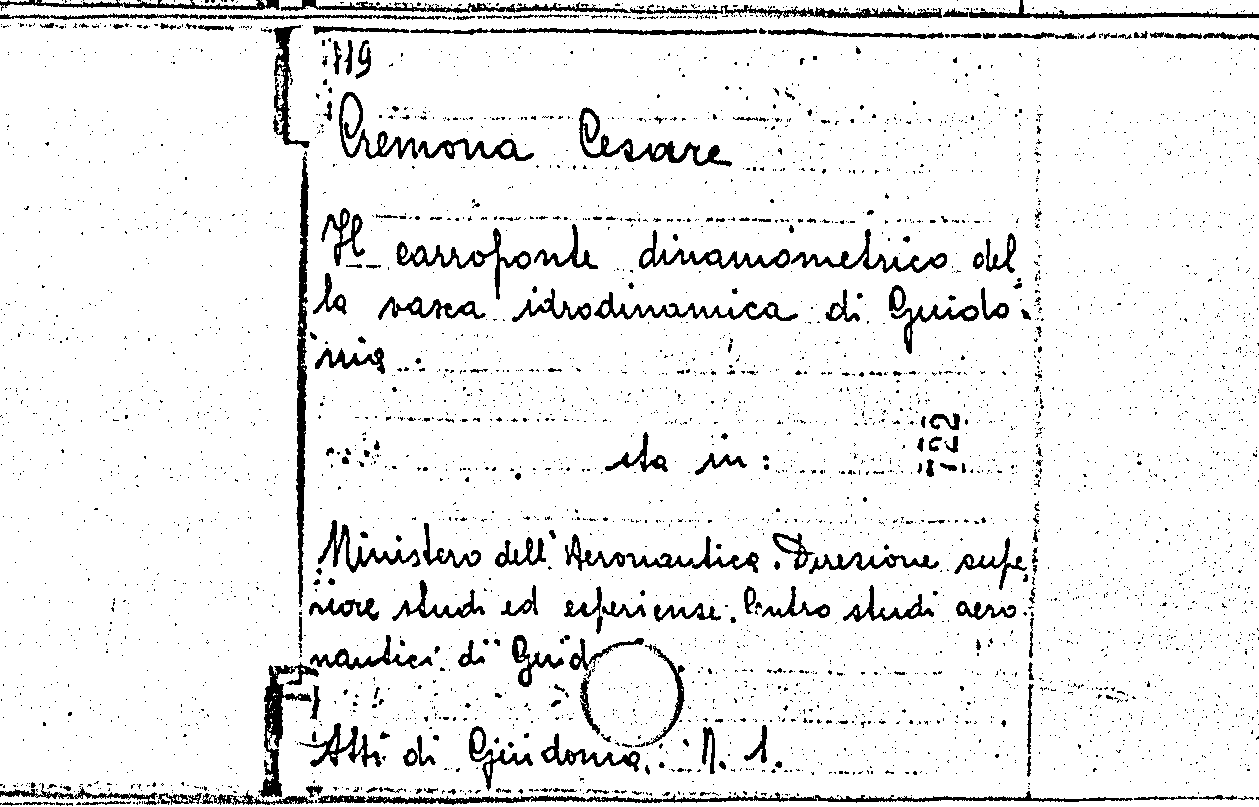 119
Cremona Cesare
Il carroponte dinamometrico del
la vasca idrodinamica di Guido-
nia.
sta in:
722
Ministero dell'Aeronautica. Direzione supe
riore studi ed esperienze. Centro studi aero
nautici di Guid
Atti di Guidonia. N. 1.